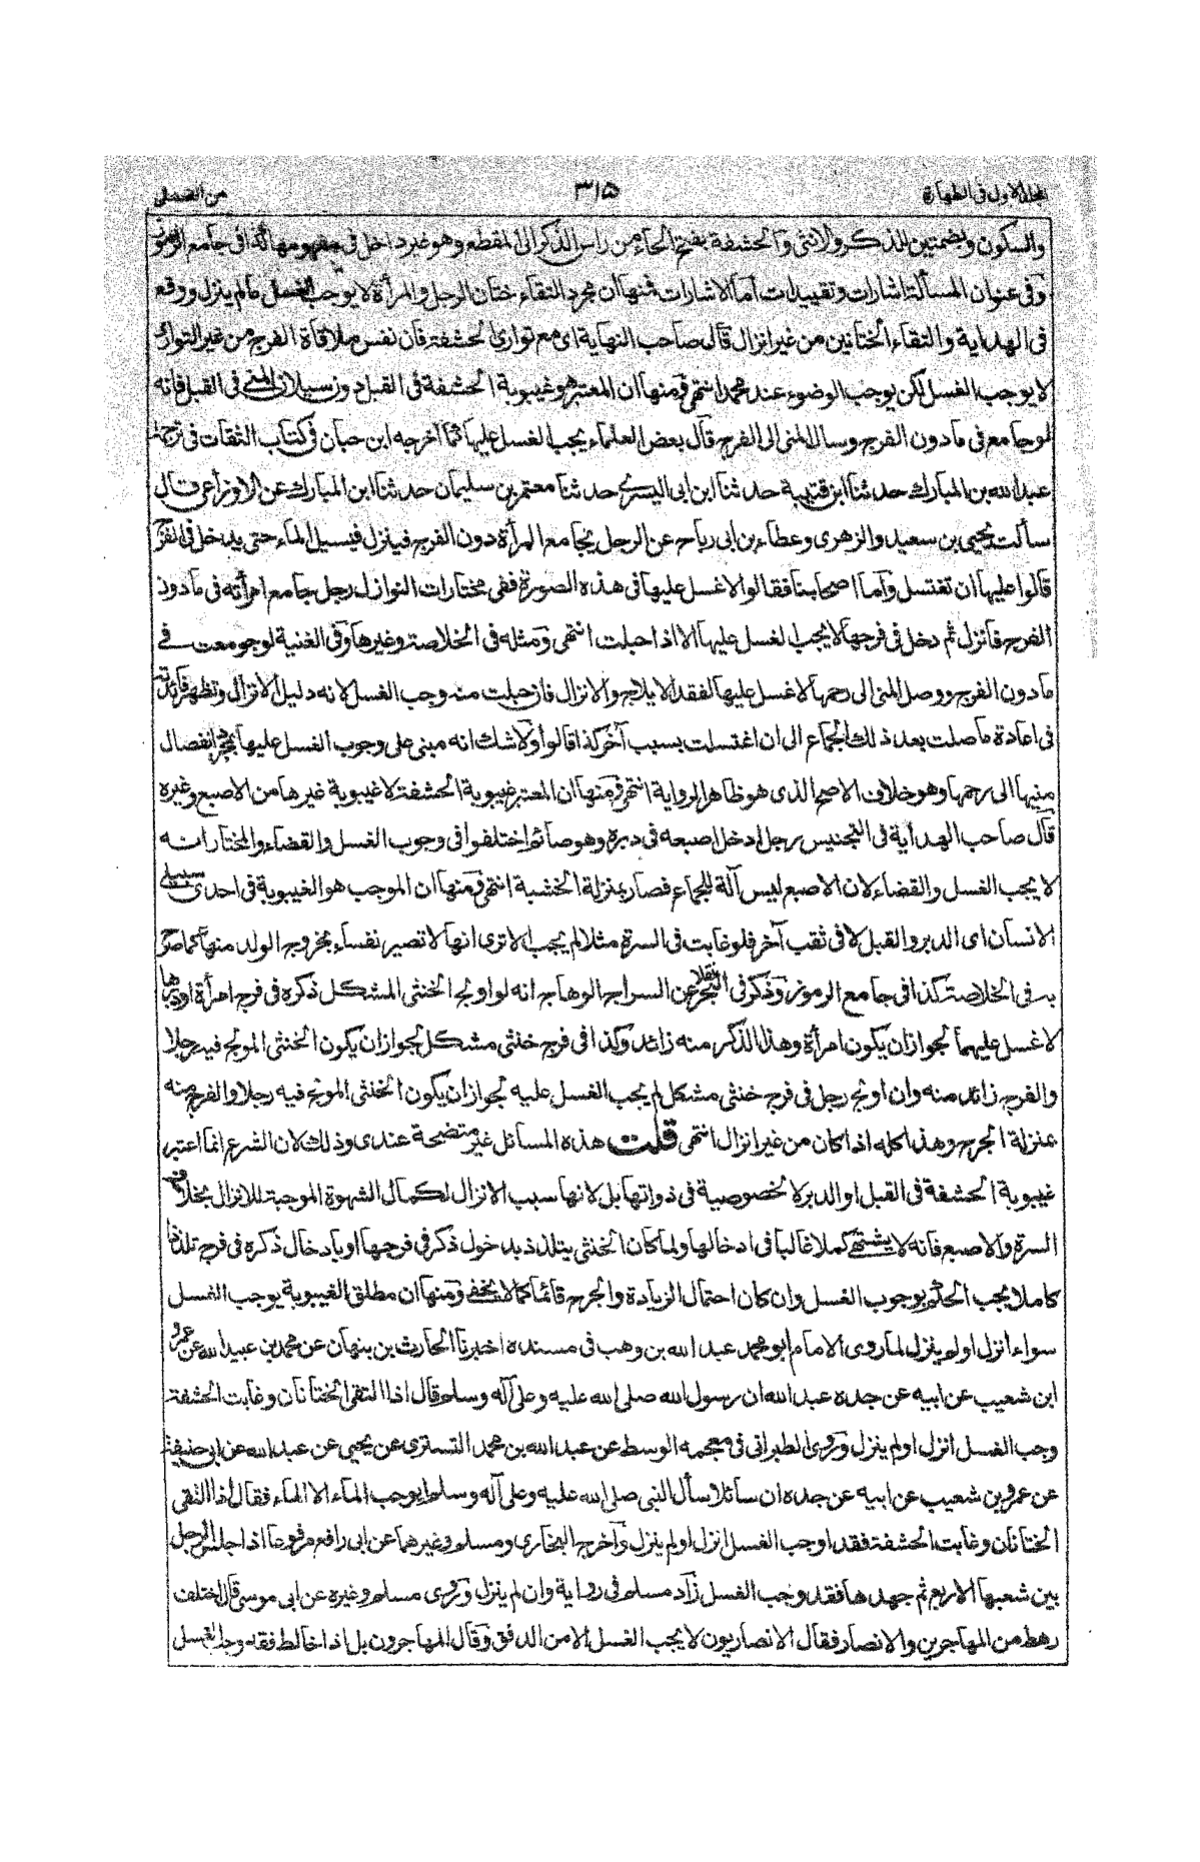 المجلد الاول فى الطهارة
٣١٥
والسكون وبضمتين للمذكر والانثى والحشفة بفتح الحاء من راس الذكر الى المقطع وهو غير داخل فى مفهومها كذا فى جامع الرموز
وفى عنوان المسألة اشارات وتقييدات اما الاشارات فمنها ان مجرد التقاء ختان الرجل والمرأة لا يوجب الغسل ما لم ينزل ووقع
فى الهداية والتقاء الختانين من غير انزال قال صاحب النهاية اى مع توارى الحشفة فان نفس ملاقاة الفرج من غير التوارى
لا يوجب الغسل لكن يوجب الوضوء عند محمد انتهى ومنها ان المعتبر هو غيبوبة الحشفة فى القبل دون سيلان المنى فى القبل فانه
لو جامع فى ما دون الفرج وسال المنى الى الفرج قال بعض العلماء يجب الغسل عليها لما اخرجه ابن حبان فى كتاب الثقات فى ترجمة
عبد الله بن المبارك حدثنا ابن قتيبة حدثنا ابن ابى السرى حدثنا معتمر بن سليمان حدثنا ابن المبارك عن الاوزاعى قال
سألت يحيى بن سعيد والزهرى وعطاء بن ابى رباح عن الرجل يجامع المرأة دون الفرج فينزل فيسيل الماء حتى يدخل فى الفرج
قالوا عليها ان تغتسل واما اصحابنا فقالوا لا غسل عليها فى هذه الصورة ففى مختارات النوازل رجل جامع امرأته فى ما دون
الفرج فانزل ثم دخل فى فرجها لا يجب الغسل عليها الا اذا حبلت انتهى ومثله فى الخلاصة وغيرها وفى الغنية لو جومعت فى
ما دون الفرج ووصل المنى الى رحمها لا غسل عليها لفقد الايلاج والانزال فان حبلت منه وجب الغسل لانه دليل الانزال وتظهر فائدته
فى اعادة ما صلت بعد ذلك الجماع الى ان اغتسلت بسبب آخر كذا قالوا ولا شك انه مبنى على وجوب الغسل عليها بمجرد انفصال
منيها الى رحمها وهو خلاف الاصح الذى هو ظاهر الرواية انتهى ومنها ان المعتبر غيبوبة الحشفة لا غيبوبة غيرها من الاصبع وغيره
قال صاحب الهداية فى التجنيس رجل ادخل اصبعه فى دبره وهو صائم اختلفوا فى وجوب الغسل والقضاء والمختار انه
لا يجب الغسل والقضاء لان الاصبع ليس آلة للجماع فصار بمنزلة الخشبة انتهى ومنها ان الموجب هو الغيبوبة فى احدى سبيلى
الانسان اى الدبر والقبل لا فى ثقب آخر فلو غابت فى السرة مثلا لم يجب الا ترى انها لا تصير نفساء بخروج الولد منها كما صرح
به فى الخلاصة كذا فى جامع الرموز وذكر فى البحر نقلا عن السراج الوهاج انه لو اولج الخنثى المشكل ذكره فى فرج امرأة او دبرها
لا غسل عليهما لجواز ان يكون امرأة وهذا الذكر منه زائد وكذا فى فرج خنثى مشكل لجواز ان يكون الخنثى المولج فيه رجلا
والفرج زائد منه وان اولج رجل فى فرج خنثى مشكل لم يجب الغسل عليه لجواز ان يكون الخنثى المولج فيه رجلا والفرج منه
بمنزلة الجرح وهذا كله اذا كان من غير انزال انتهى قلت هذه المسائل غير متضحة عندى وذلك لان الشرع انما اعتبر
غيبوبة الحشفة فى القبل او الدبر لا لخصوصية فى ذواتها بل لانها سبب الانزال لكمال الشهوة الموجبة للانزال بخلاف
السرة والاصبع فانه لا يشتهى كملا غالبا فى ادخالها ولما كان الخنثى يتلذذ بدخول ذكر فى فرجها او بادخال ذكره فى فرج تلذذا
كاملا يجب الحكم بوجوب الغسل وان كان احتمال الزيادة والجرح قائما كما لا يخفى ومنها ان مطلق الغيبوبة يوجب الغسل
سواء انزل او لم ينزل لما روى الامام ابو محمد عبد الله بن وهب فى مسنده اخبرنا الحارث بن نبهان عن محمد بن عبيد الله عن عمرو
ابن شعيب عن ابيه عن جده عبد الله ان رسول الله صلى الله عليه وعلى آله وسلم قال اذا التقى الختانان وغابت الحشفة
وجب الغسل انزل او لم ينزل وروى الطبرانى فى معجمه الوسط عن عبد الله بن محمد التسترى عن يحيى عن عبد الله عن ابى حنيفة
عن عمرو بن شعيب عن ابيه عن جده ان سائلا سأل النبى صلى الله عليه وعلى آله وسلم ايوجب الماء الا الماء فقال اذا التقى
الختانان وغابت الحشفة فقد اوجب الغسل انزل او لم ينزل واخرج البخارى ومسلم وغيرهما عن ابى رافع مرفوعا اذا جلس الرجل
بين شعبها الاربع ثم جهدها فقد وجب الغسل زاد مسلم فى رواية وان لم ينزل وروى مسلم وغيره عن ابى موسى قال اختلف
رهط من المهاجرين والانصار فقال الانصاريون لا يجب الغسل الا من الدفق وقال المهاجرون بل اذا خالط فقد وجب الغسل